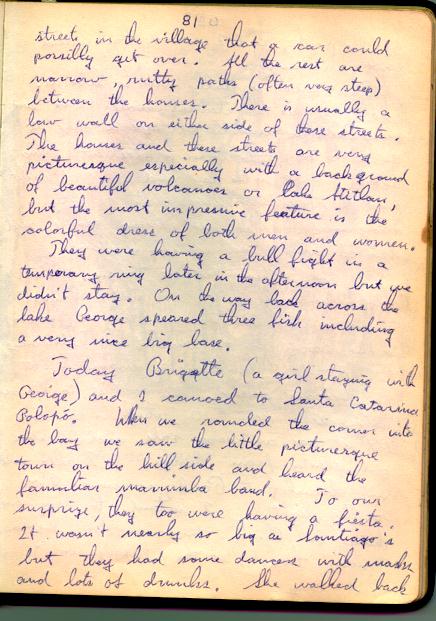 81
streets in the village that a car could
possibly get over. All the rest are
narrow, rutty paths (often very steep)
between the houses. There is usually a
low wall on either side of these streets.
The houses and these streets are very
picturesque especially with a background
of beautiful volcanoes or Lake Atitlan,
but the most impressive feature is the
colorful dress of both men and women.
They were having a bull fight in a
temporary ring later in the afternoon but we
didn't stay. On the way back across the
lake George speared three fish including
a very nice big base.
Today Briggtte (a girl staying with
George) and I canoed to Santa Catarina
Polopó. When we rounded the corner into
the bay we saw the little picturesque
town on the hill side and heard the
familiar marimba band. To our
surprize, they too were having a fiesta.
It wasn't nearly so big as Santiago's
but they had some dancers with masks
and lots of drunks. She walked back